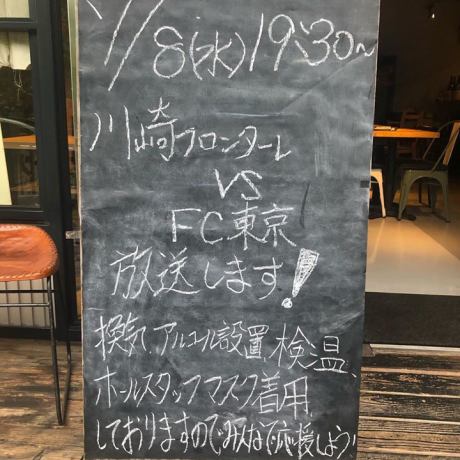 7/8(水)19:30~
川崎フロンターレ
VS
FC東京
放送します!
換気、アルコール設置、検温、
ホールスタッフマスク着用、
しておりますのでみんなで応援しよう!